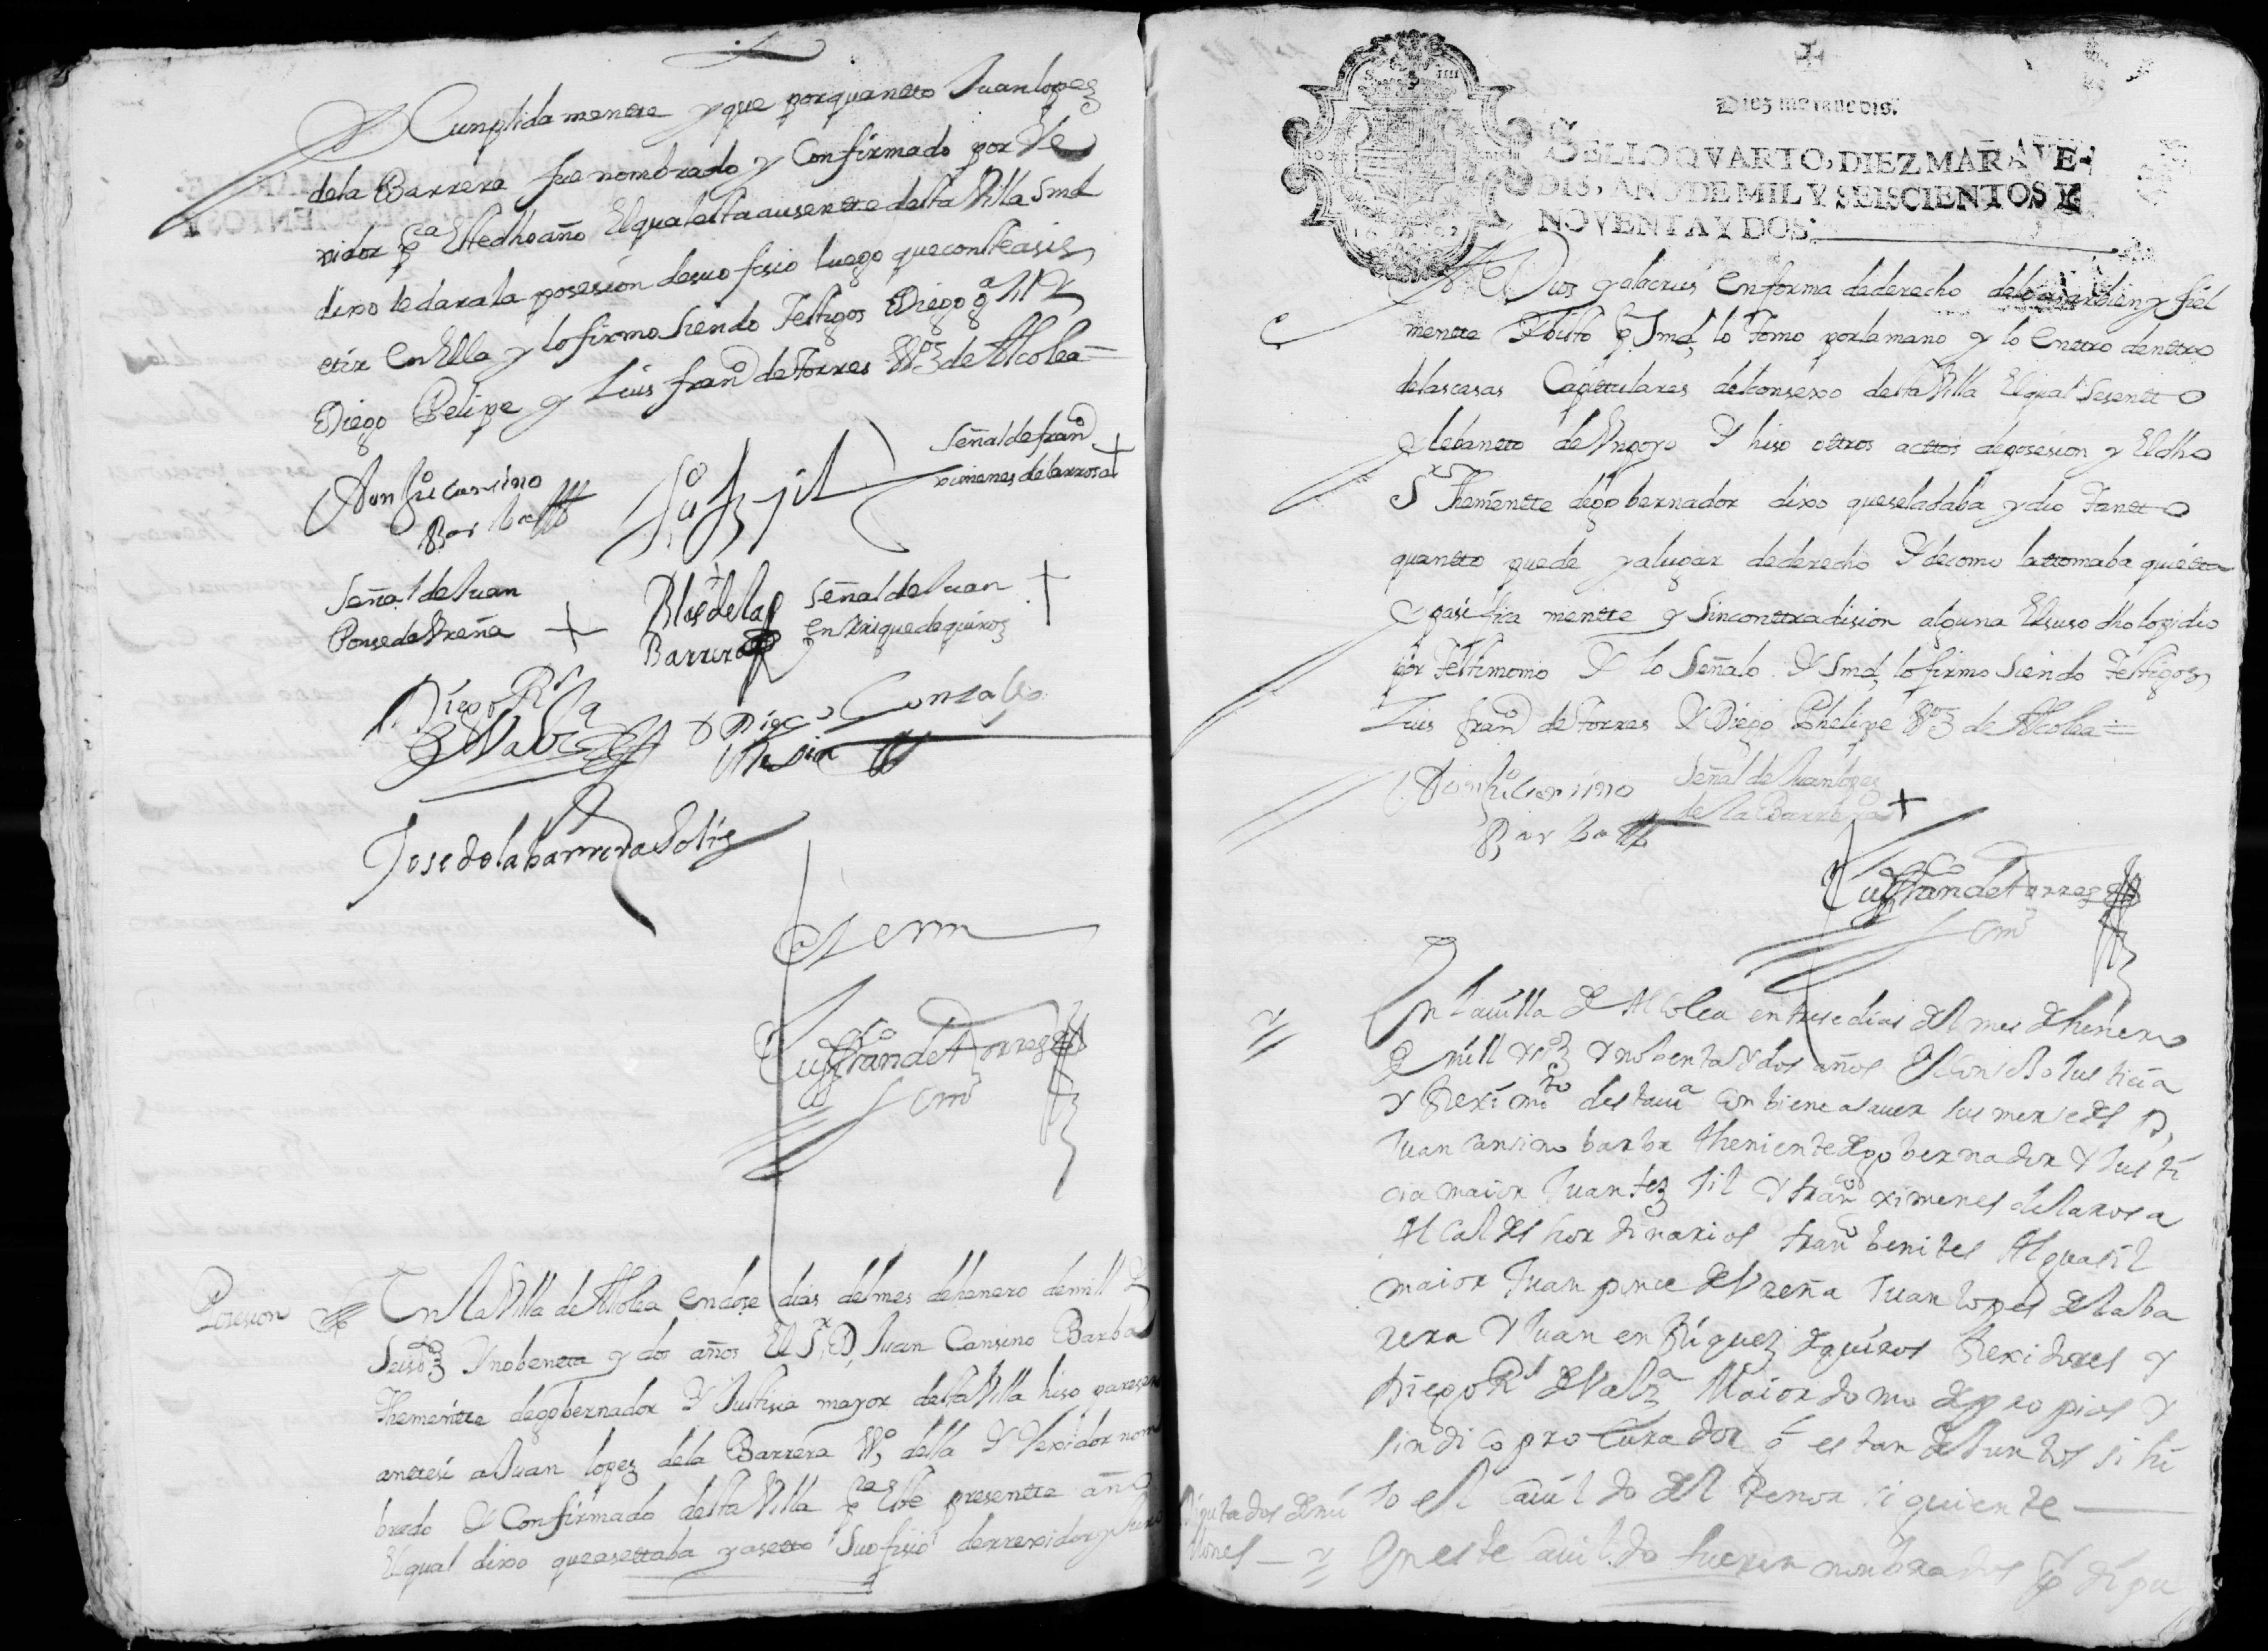 Cumplida mentte y que por quantto Juan lopez
dela Barrera fue nombrado y Confirmado por Re
xidor pa Este dho año El qual esta ausentte desta Villa Smd
dixo le dara la posesion de su ofisio luego que conste asis
ttir en Ella y lo firmo siendo Testigos Diego
Diego Phelipe y Luis franco de Torres Vos de Alcolea =
Don Ju cansino
Barba
Ju fz gil
Señal de franco
ximenes de la rrosa +
Señal de Juan
Ponse de Vreña +
Blas de la
Barrera
Señal de Juan
enrrique de quiros +
Diego Rs
de Valza
Diego Gonzales
Mesia
Jose de la barrera Solis
Luis franco de Torres
scrno
Posesion
En la Villa de Alcolea en dose dias del mes de henero de mill y
seisos y nobentta y dos años El Sr D, Juan Cansino Barba
Thenientte de gobernador y Justisia mayor desta Villa hiso pareser
antte si a Juan lopez dela Barrera Vo, della y Rexidor nom
brado y Confirmado desta Villa pa Este presentte año
El qual dixo que asettaba y asetto Su ofisio de rrexidor y Juro
Diez maravedis.
SELLO QVARTO, DIEZ MARAVE-
DIS, AÑO DE MIL Y SEISCIENTOS Y
NOVENTA Y DOS.
A Dios y a la crus en forma de derecho de bien y fiel
mentte Y Visto p Smd, lo Tomo por la mano y lo Enttro denttro
de las casas Capittulares del consexo desta Villa El qual se sentto
y lebantto de Vn poyo Y hiso ottros acttos de posesion y El dho
Sr Thenientte de gobernador dixo que se la daba y dio Tantto
quantto puede y a lugar de derecho Y de como la ttomaba quietta
y pasifica mentte y Sin conttradision alguna El suso dho lo pidio
por Testimonio Y lo Señalo Y Smd, lo firmo siendo Testigos
Luis franco de Torres Y Diego Phelipe Vos de Alcolea =
Don Ju cansino
Barba
Señal de Juan lopez
de la Barrera +
Luis franco de Torres
scrno
En la uilla de Alcolea en trese dias del mes de henero
de mill y sos y nobenta y dos años El consexo Justicia
y Reximto desta ua conbiene a sauer sus mersedes D,
Juan cansino barba theniente de gobernador y Justi
cia maior Juan fez gil y franco ximenes de la rosa
Alcaldes hordinarios franco benites Alguasil
maior Juan ponce de Vreña Juan lopes de la ba
rera y Juan enrriquez de quiros Rexidores y
Diego Rs de Valza Maiordomo de propios y
sindico procurador q estando Juntos si hi
so el cauildo del tenor siguiente
Diputados de mi
llones
En este cauildo fueron nonbrados p dipu